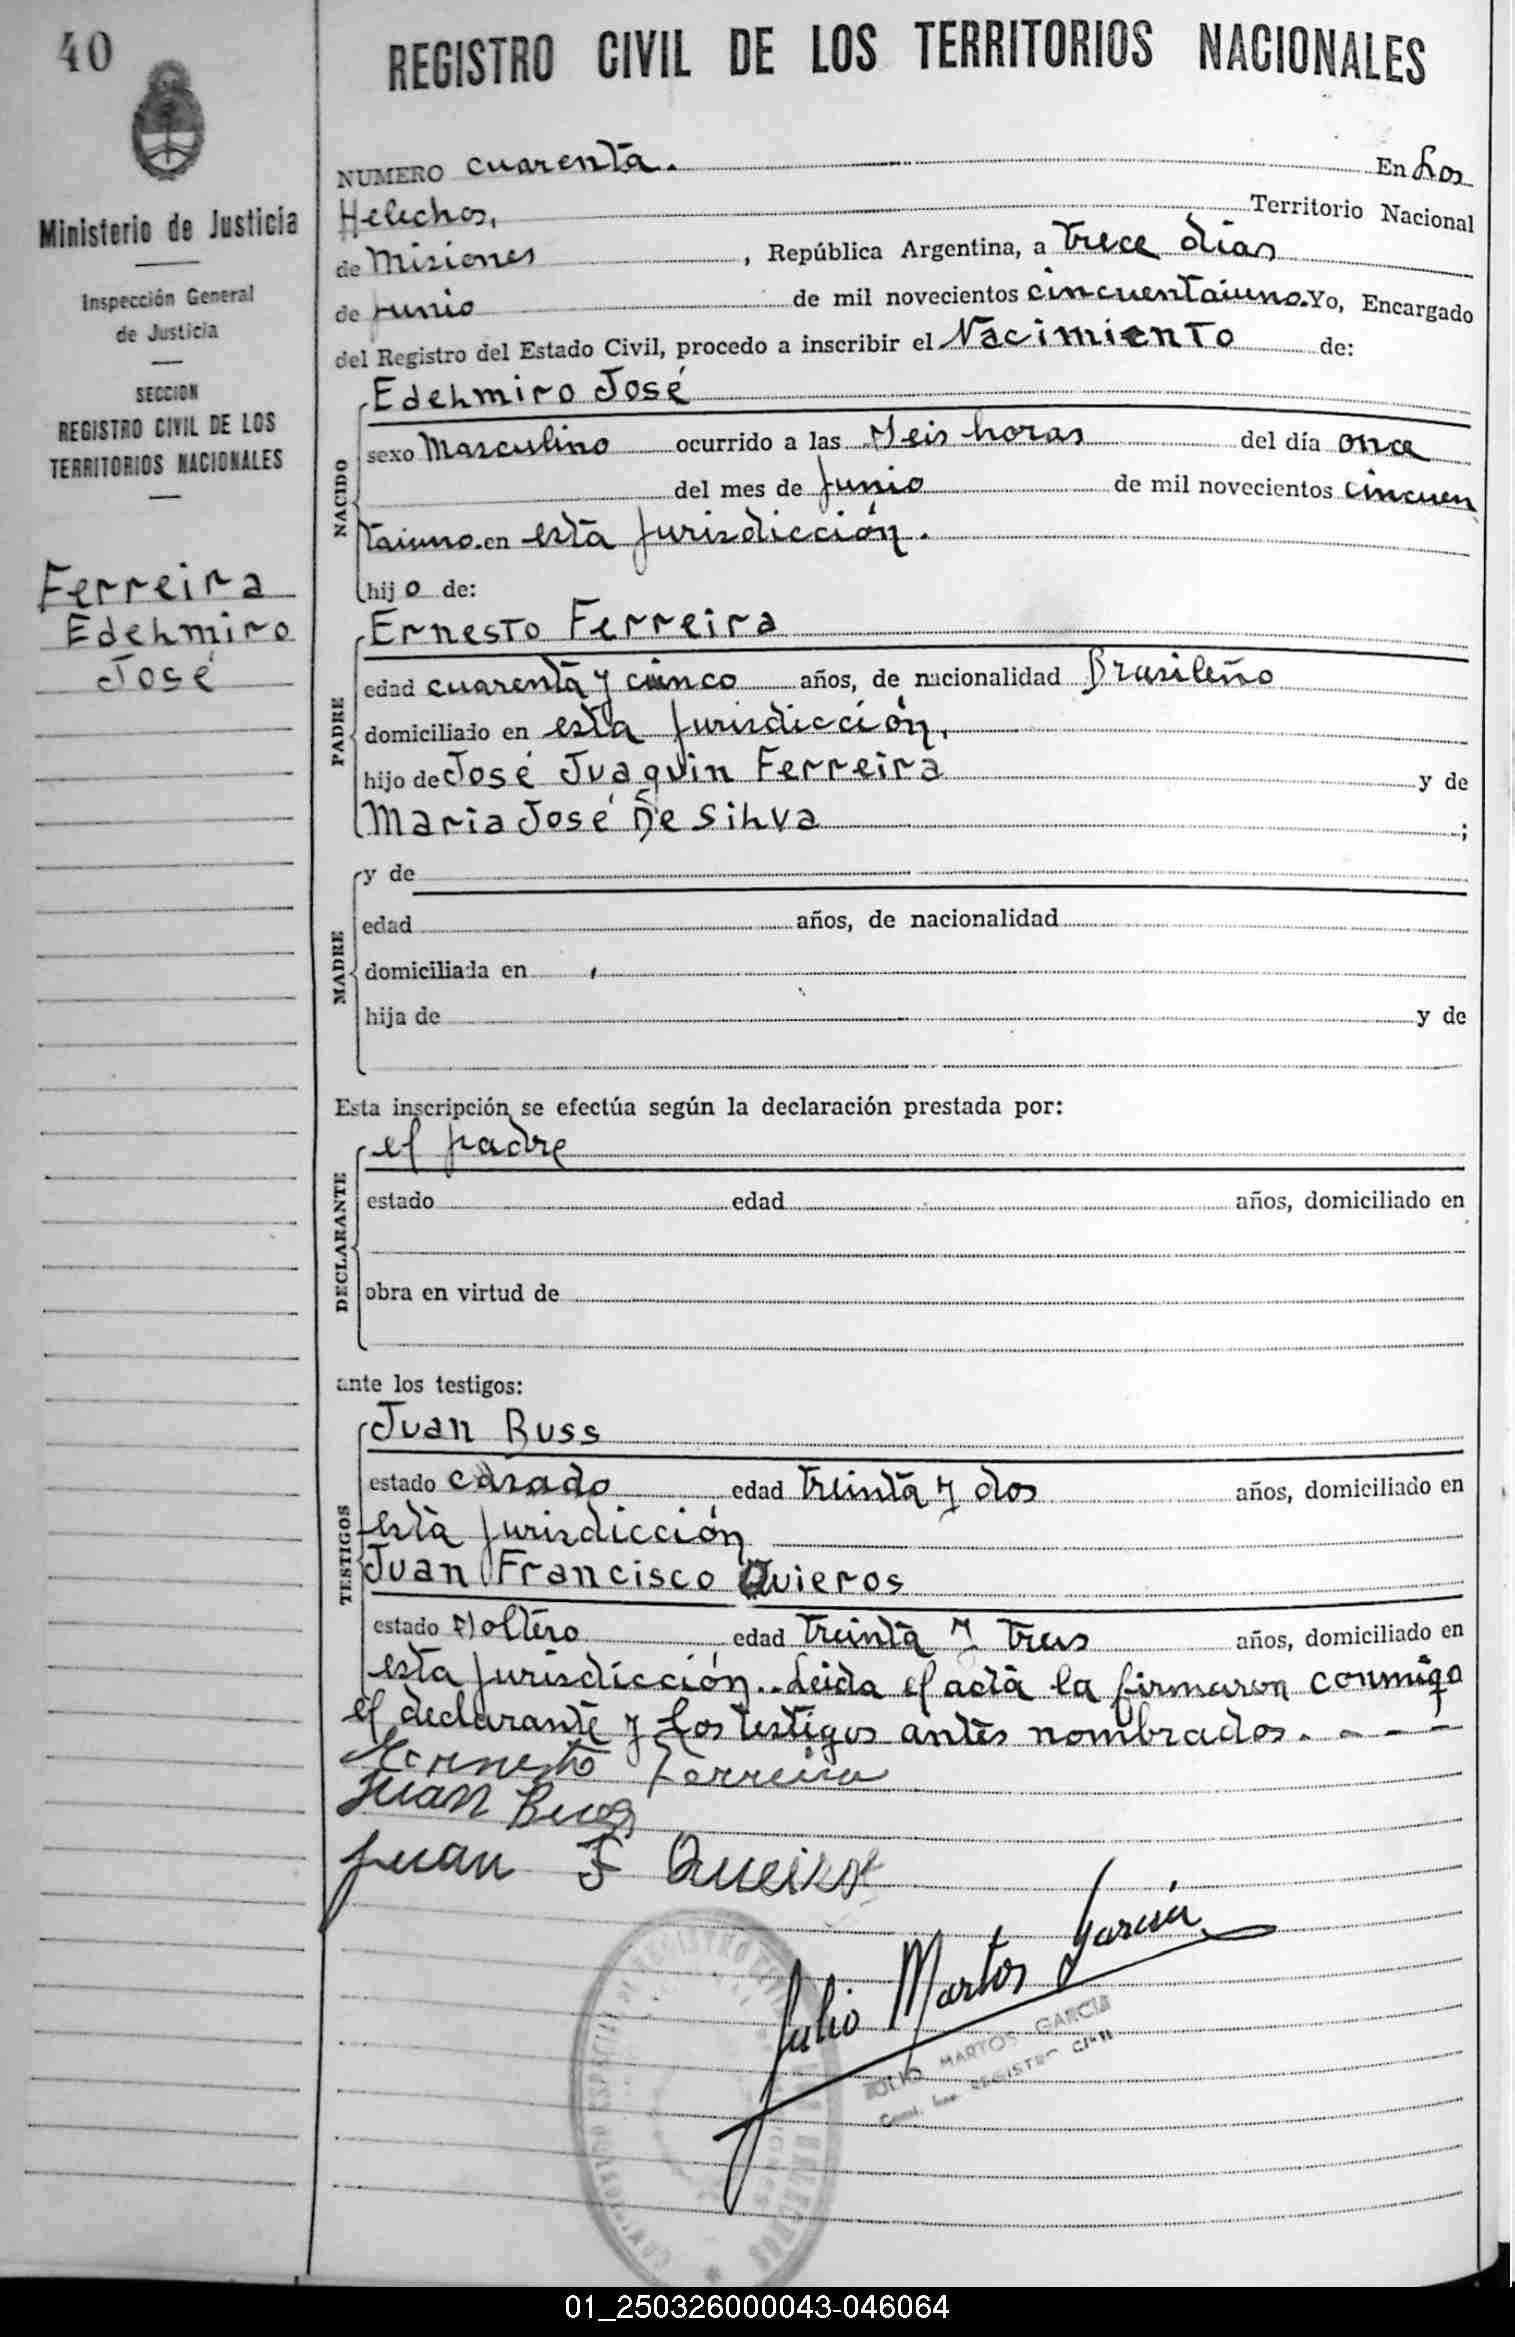 40
Ministerio de Justicia
Inspección General
de Justicia
SECCION
REGISTRO CIVIL DE LOS
TERRITORIOS NACIONALES
Ferreira
Edelmiro
José
REGISTRO CIVIL DE LOS TERRITORIOS NACIONALES
NUMERO cuarenta. En Los
Helechos, Territorio Nacional
de Misiones, República Argentina, a trece dias
de junio de mil novecientos cincuentaiuno. Yo, Encargado
del Registro del Estado Civil, procedo a inscribir el Nacimiento de:
NACIDO
Edelmiro José
sexo Masculino ocurrido a las Seis horas del día once
del mes de junio de mil novecientos cincuen
taiuno. en esta jurisdicción.
hijo de:
PADRE
Ernesto Ferreira
edad cuarenta y cinco años, de nacionalidad Brasileño
domiciliado en esta jurisdicción,
hijo de José Juaquin Ferreira y de
Maria José De Silva ;
MADRE
y de
edad años, de nacionalidad
domiciliada en
hija de y de
Esta inscripción se efectúa según la declaración prestada por:
DECLARANTE
el padre
estado edad años, domiciliado en
obra en virtud de
ante los testigos:
TESTIGOS
Juan Buss
estado casado edad treinta y dos años, domiciliado en
esta jurisdicción
Juan Francisco Quieros
estado Soltero edad treinta y tres años, domiciliado en
esta jurisdicción.. Leida el acta la firmaron conmigo
el declarante y los testigos antes nombrados. - - - -
Ernesto Ferreira
Juan Buss
Juan F Queiros
Julio Martos García
JULIO MARTOS GARCIA
REGISTRO CIVIL
01_250326000043-046064